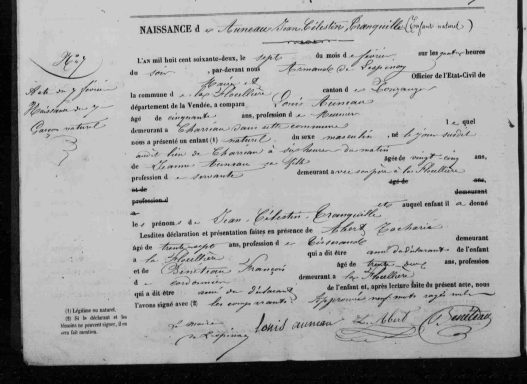 NAISSANCE d e Auneau Jean Célestin Tranquille (Enfant naturel)
N° 7
Acte du 7 février
Naissance du 7
Garçon naturel
L'AN mil huit cent soixante-deux, le sept du mois de février sur les quatre heures
du soir, par-devant nous Armand de Lespinay
Maire et Officier de l'Etat-Civil de
la commune d e la Flocellière canton d e Pouzauges
département de la Vendée, a comparu Louis Auneau
âgé de cinquante ans, profession d e Meunier
demeurant à Charriau dans cette commune lequel
nous a présenté un enfant (1) naturel du sexe masculin, né le jour susdit
audit lieu de Charriau à six heures du matin
de Jeanne Auneau sa fille âgée de vingt-cinq ans,
profession d e servante demeurant avec son père à la Flocellière
et de âgé de ans,
profession d demeurant
à
et auquel enfant il a donné
les prénoms d e Jean Célestin Tranquille
Lesdites déclaration et présentation faites en présence de Abert Zacharie
âgé de trente sept ans, profession d e Tisserand demeurant
à la Flocellière qui a dit être ami du déclarant de l'enfant
et de François âgé de trente ans, profession
d e cordonnier demeurant à la Flocellière
qui a dit être ami du déclarant de l'enfant, et après lecture faite du présent acte, nous
l'avons signé avec (2) les comparants. Approuvé neuf mots rayés nuls
(1) Légitime ou naturel.
(2) Si le déclarant et les
témoins ne peuvent signer, il en
sera fait mention.
Le maire
de Lespinay
louis auneau
Abert